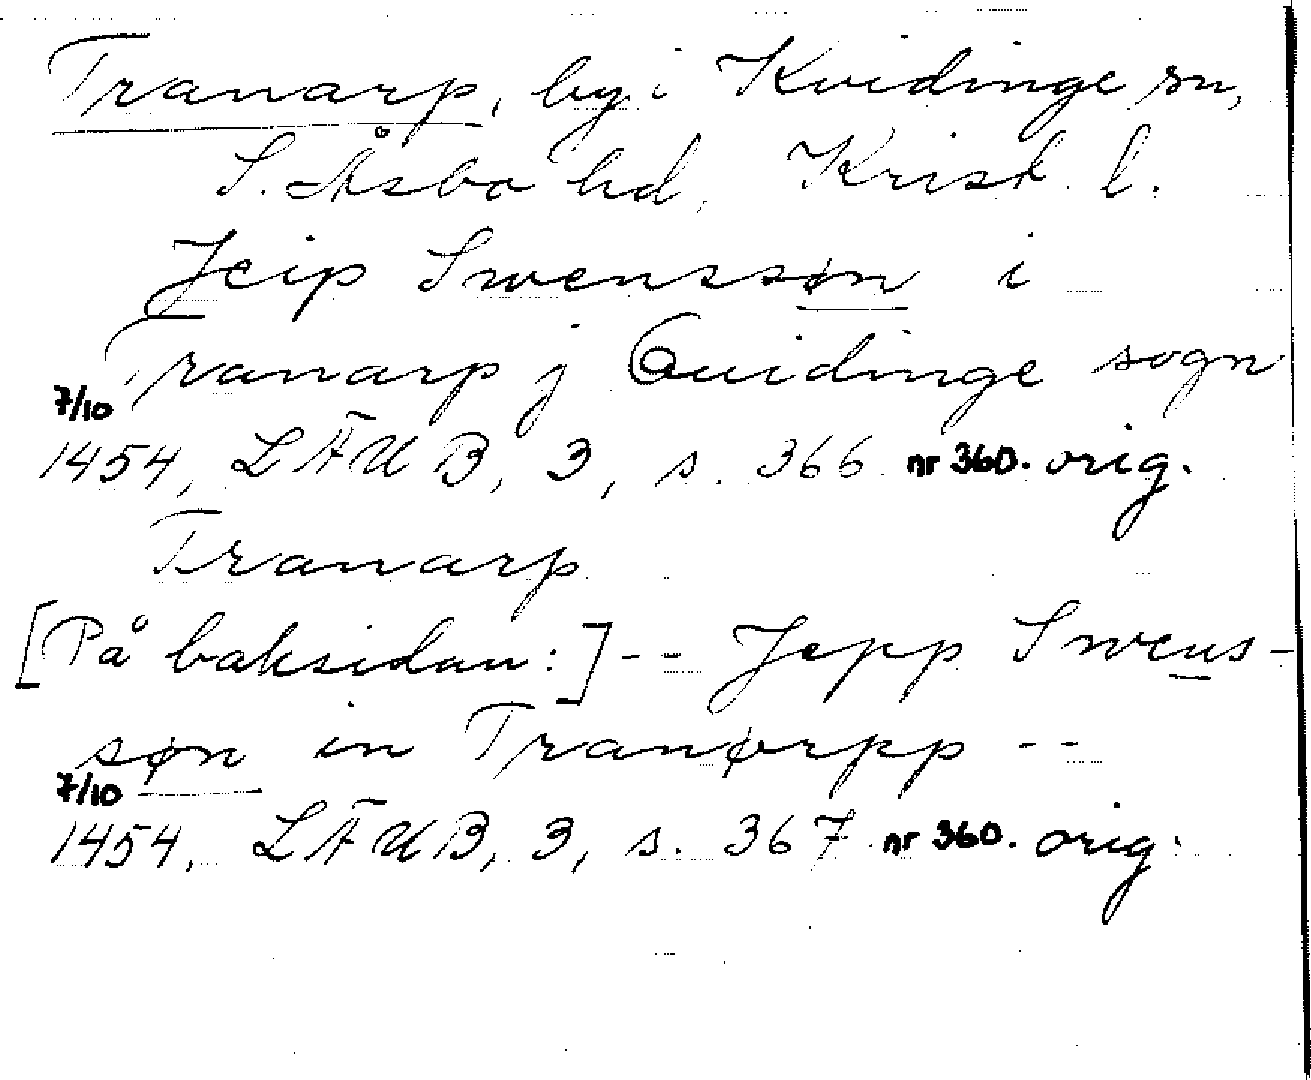 Tranarp, by i Kvidinge sn,
S. Åsbo hd, Krist. l.
Jeip Swenssøn i
Tranarp j Quidinge sogn
7/10
1454, LÄUB, 3, s. 366 nr 360. orig.
Tranarp
[På baksidan:] -- Jepp Swens-
søn in Tranørpp --
7/10
1454, LÄUB, 3, s. 367 nr 360. orig.